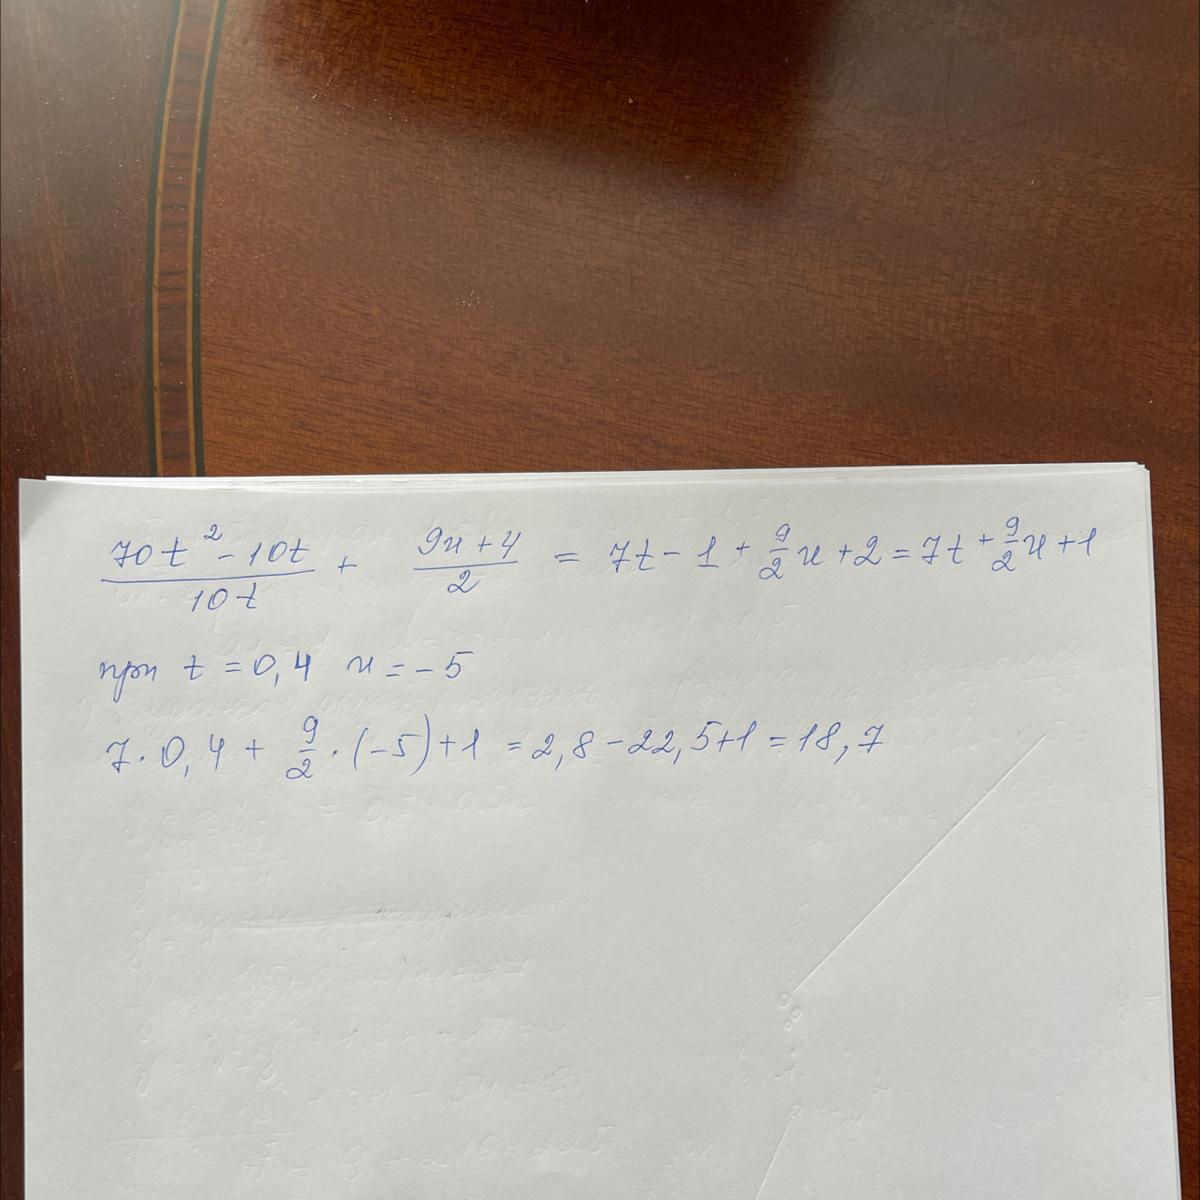 (70t² - 10t)/(10t) + (9u + 4)/2 = 7t - 1 + 9/2 u + 2 = 7t + 9/2 u + 1
при t = 0,4 u = -5
7 · 0,4 + 9/2 · (-5) + 1 = 2,8 - 22,5 + 1 = 18,7